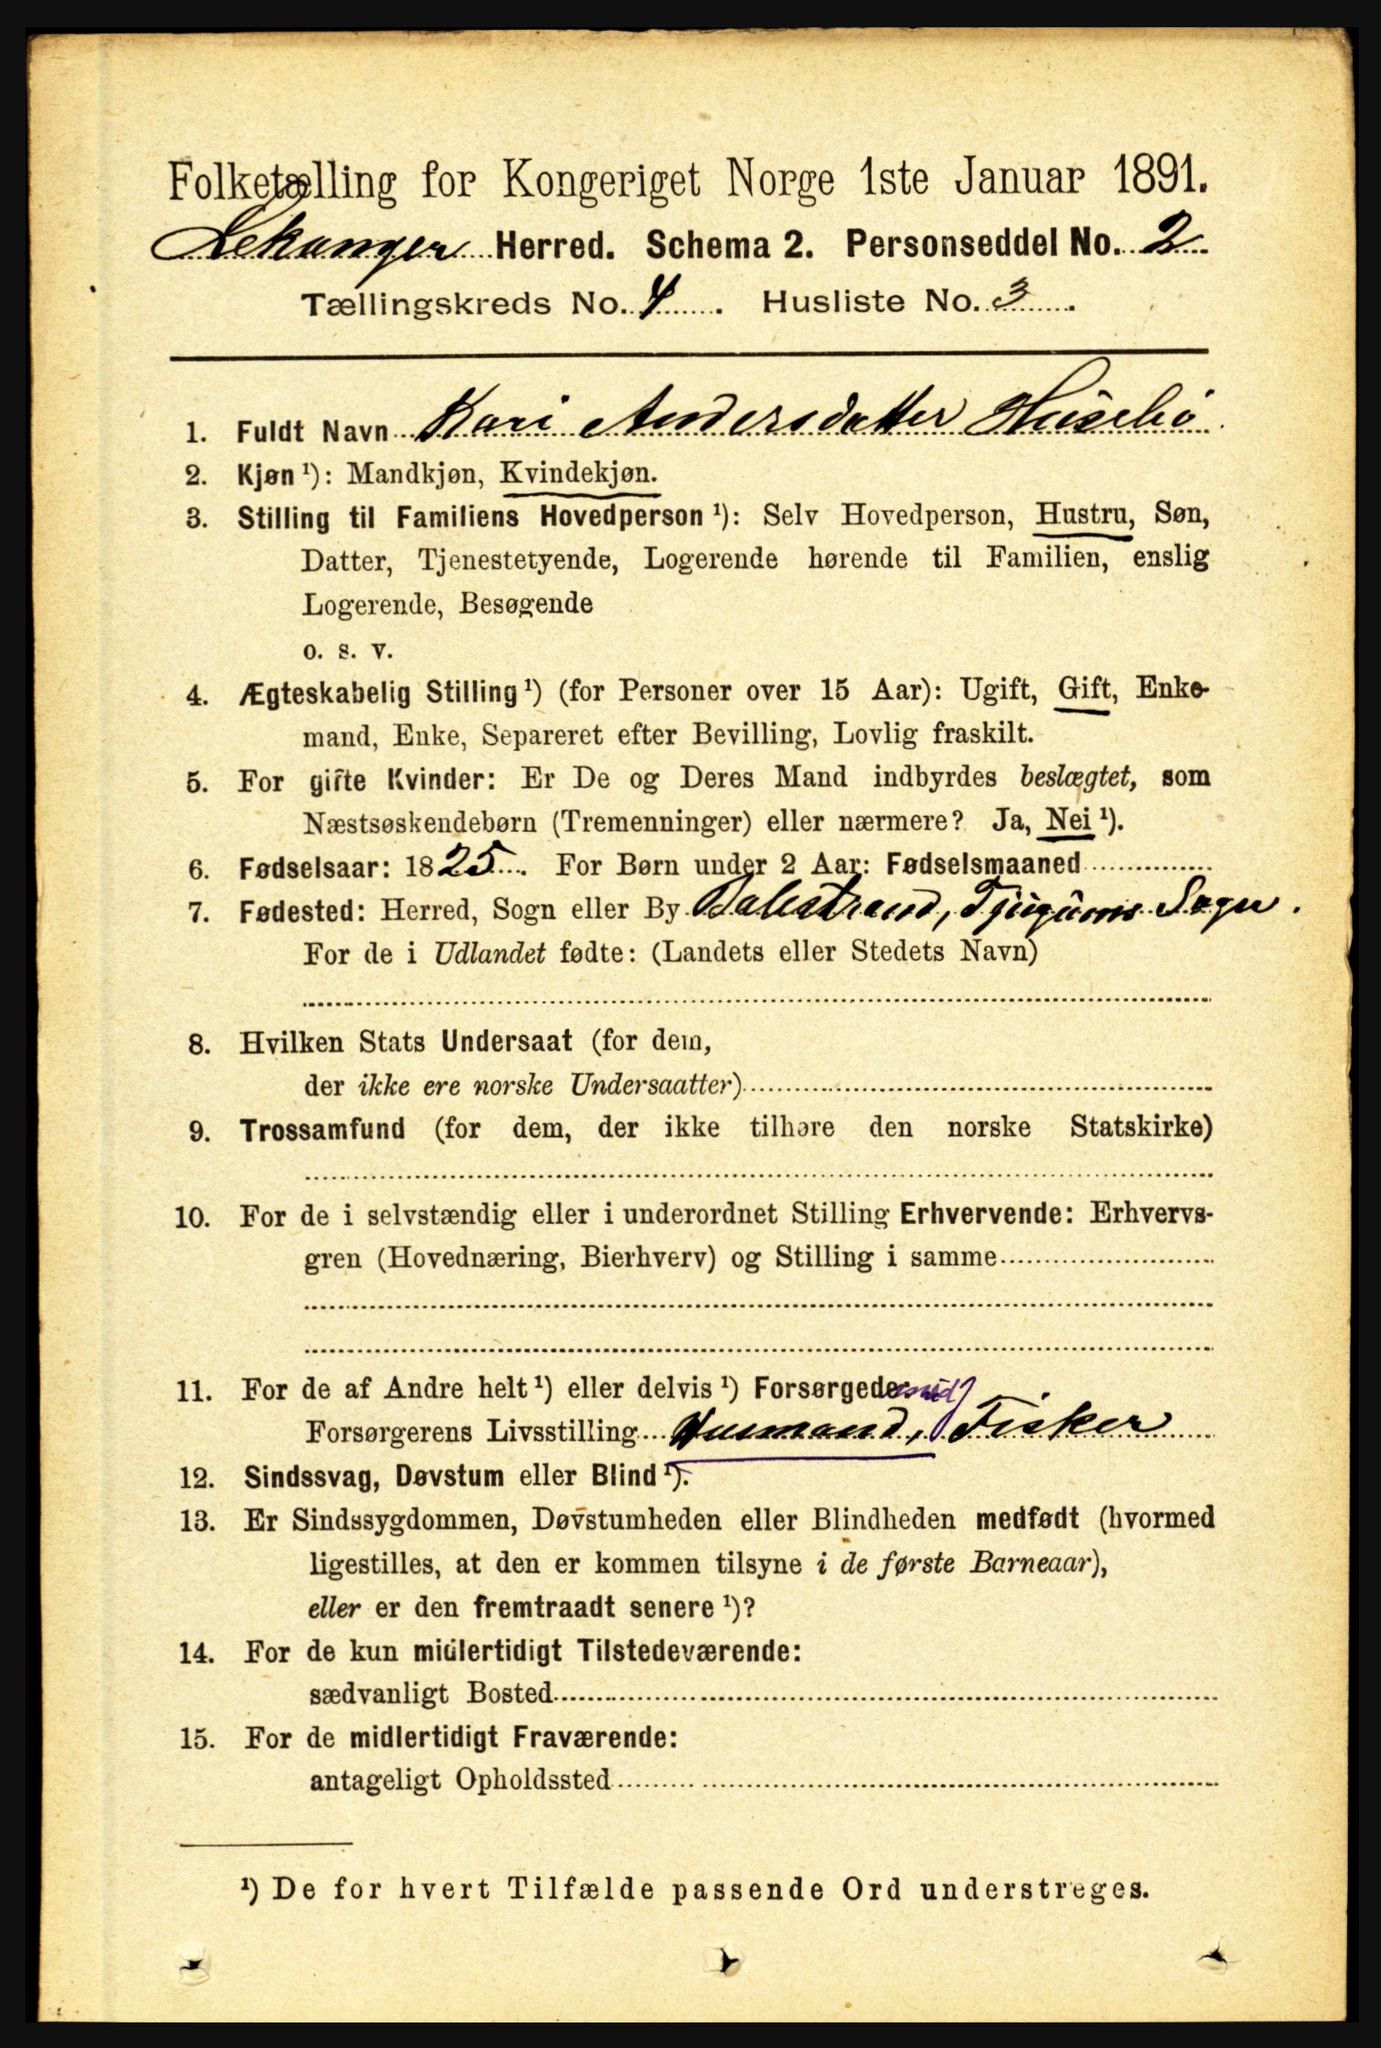 Folketælling for Kongeriget Norge 1ste Januar 1891.
Lekanger Herred. Schema 2. Personseddel No. 2
Tællingskreds No. 4. Husliste No. 3.
1. Fuldt Navn Kari Andersdatter Husebö
2. Kjøn ¹): Mandkjøn, Kvindekjøn.
3. Stilling til Familiens Hovedperson ¹): Selv Hovedperson, Hustru, Søn,
Datter, Tjenestetyende, Logerende hørende til Familien, enslig
Logerende, Besøgende
o. s. v.
4. Ægteskabelig Stilling ¹) (for Personer over 15 Aar): Ugift, Gift, Enke-
mand, Enke, Separeret efter Bevilling, Lovlig fraskilt.
5. For gifte Kvinder: Er De og Deres Mand indbyrdes beslægtet, som
Næstsøskendebørn (Tremenninger) eller nærmere? Ja, Nei ¹).
6. Fødselsaar: 1825. For Børn under 2 Aar: Fødselsmaaned
7. Fødested: Herred, Sogn eller By Balestrand, Tjugums Sogn.
For de i Udlandet fødte: (Landets eller Stedets Navn)
8. Hvilken Stats Undersaat (for dem,
der ikke ere norske Undersaatter)
9. Trossamfund (for dem, der ikke tilhøre den norske Statskirke)
10. For de i selvstændig eller i underordnet Stilling Erhvervende: Erhvervs-
gren (Hovednæring, Bierhverv) og Stilling i samme
11. For de af Andre helt ¹) eller delvis ¹) Forsørgede:
Forsørgerens Livsstilling Husmand, Fisker
12. Sindssvag, Døvstum eller Blind ¹).
13. Er Sindssygdommen, Døvstumheden eller Blindheden medfødt (hvormed
ligestilles, at den er kommen tilsyne i de første Barneaar),
eller er den fremtraadt senere ¹)?
14. For de kun midlertidigt Tilstedeværende:
sædvanligt Bosted
15. For de midlertidigt Fraværende:
antageligt Opholdssted
¹) De for hvert Tilfælde passende Ord understreges.